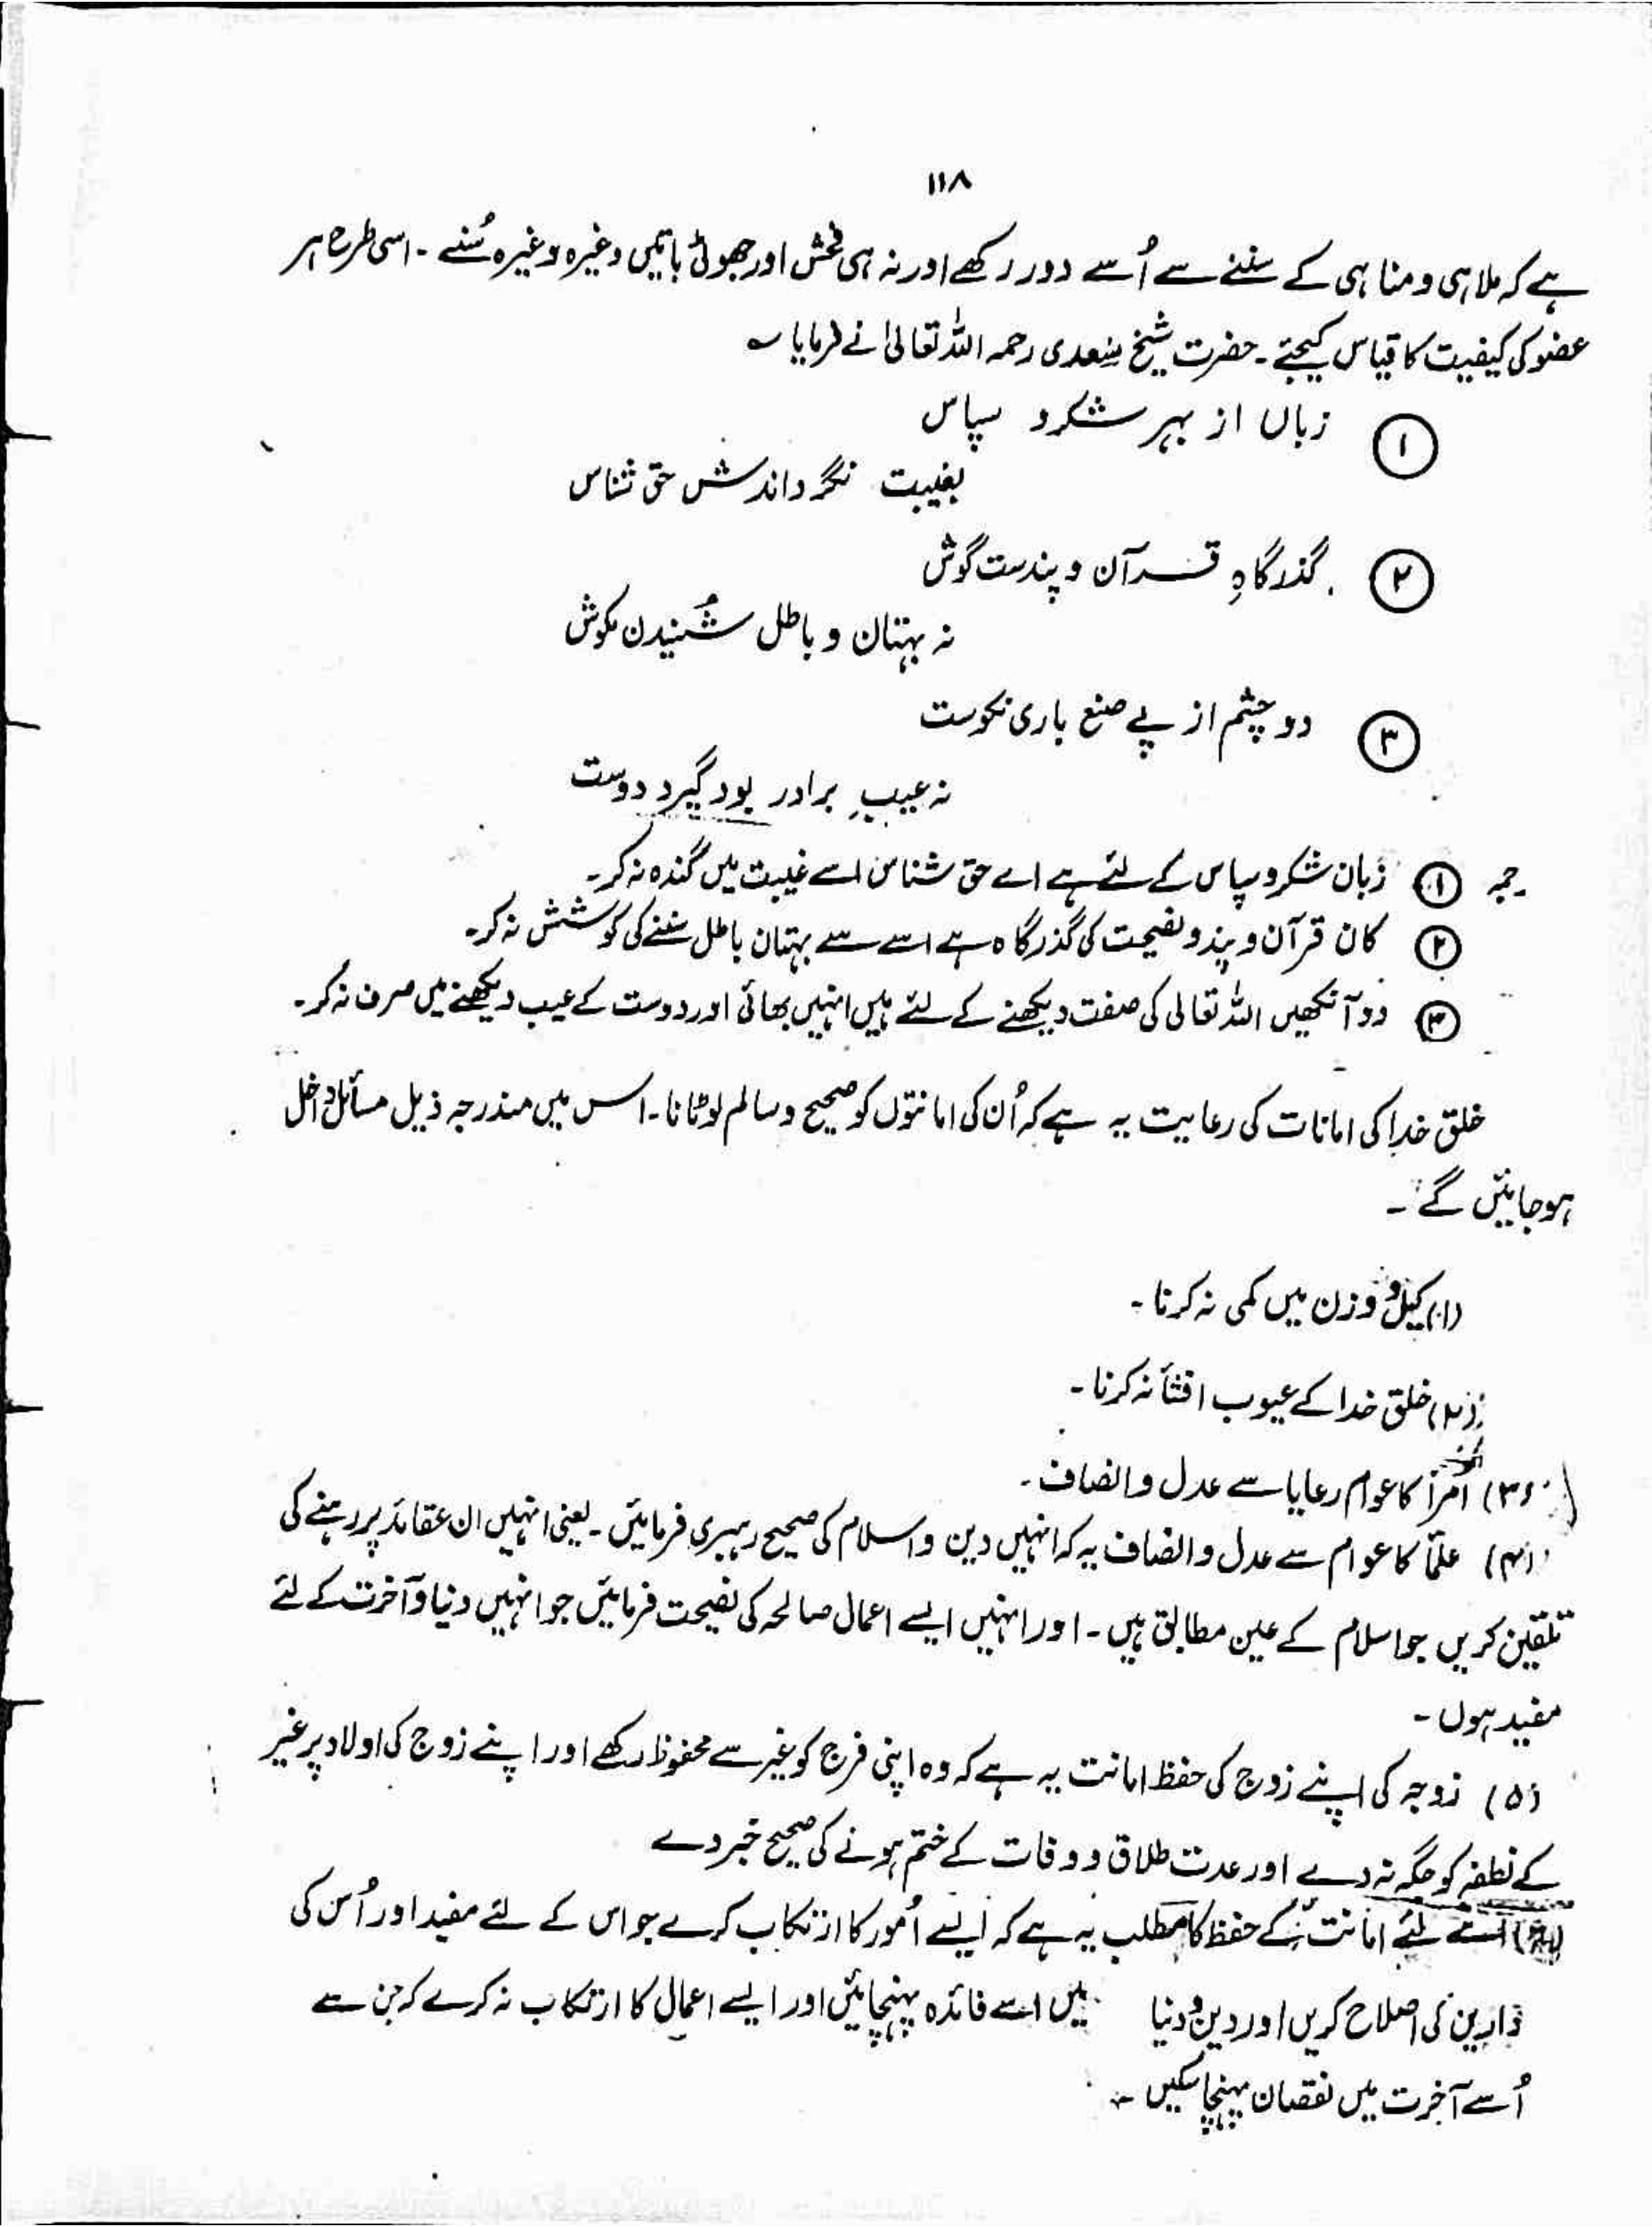 ۱۱۸
ہے کہ ملاہی و مناہی کے سننے سے اُسے دور رکھے اور نہ ہی فحش اور جھوٹی باتیں وغیرہ وغیرہ سُنے ۔ اسی طرح ہر
عضو کی کیفیت کا قیاس کیجئے ۔ حضرت شیخ سعدی رحمہ اللہ تعالیٰ نے فرمایا ؎
۱ زباں از بہر شکر و سپاس
بغیبت نگرداندش حق شناس
۲ گذرگاہِ قرآن و پندست گوش
نہ بہتان و باطل شُنیدن مکوش
۳ دو چشم از پے صنع باری نکوست
نہ عیبِ برادر بود گیرد دوست
جمہ ۱ زبان شکر و سپاس کے لئے ہے اے حق شناس اسے غیبت میں گندہ نہ کر۔
۲ کان قرآن و پند و نصیحت کی گذرگاہ ہے اسے سے بہتان باطل سننے کی کوشش نہ کر۔
۳ دو آنکھیں اللہ تعالی کی صفت دیکھنے کے لئے ہیں انہیں بھائی اور دوست کے عیب دیکھنے میں صرف نہ کر۔
خلق خدا کی امانات کی رعایت یہ ہے کہ اُن کی امانتوں کو صحیح و سالم لوٹانا ۔ اس میں مندرجہ ذیل مسائل داخل
ہو جائیں گے ۔
(۱) کیل و وزن میں کمی نہ کرنا ۔
(۲) خلق خدا کے عیوب افشأ نہ کرنا ۔
(۳) اُمرأ کا عوام رعایا سے عدل و انصاف ۔
(۴) علمأ کا عوام سے عدل و انصاف یہ کہ انہیں دین و اسلام کی صحیح رہبری فرمائیں ۔ یعنی انہیں ان عقائد پر رہنے کی
تلقین کریں جو اسلام کے عین مطابق ہیں ۔ اور انہیں ایسے اعمال صالحہ کی نصیحت فرمائیں جو انہیں دنیا و آخرت کے لئے
مفید ہوں ۔
(۵) زوجہ کی اپنے زوج کی حفظ امانت یہ ہے کہ وہ اپنی فرج کو غیر سے محفوظ رکھے اور اپنے زوج کی اولاد پر غیر
کے نطفہ کو جگہ نہ دے اور عدت طلاق و وفات کے ختم ہونے کی صحیح خبر دے
لئے امانت کے حفظ کا مطلب یہ ہے کہ ایسے اُمور کا ارتکاب کرے جو اس کے لئے مفید اور اُس کی
دارین کی اصلاح کریں اور دین و دنیا میں اسے فائدہ پہنچائیں اور ایسے اعمال کا ارتکاب نہ کرے کہ جن سے
اُسے آخرت میں نقصان پہنچا سکیں ۔